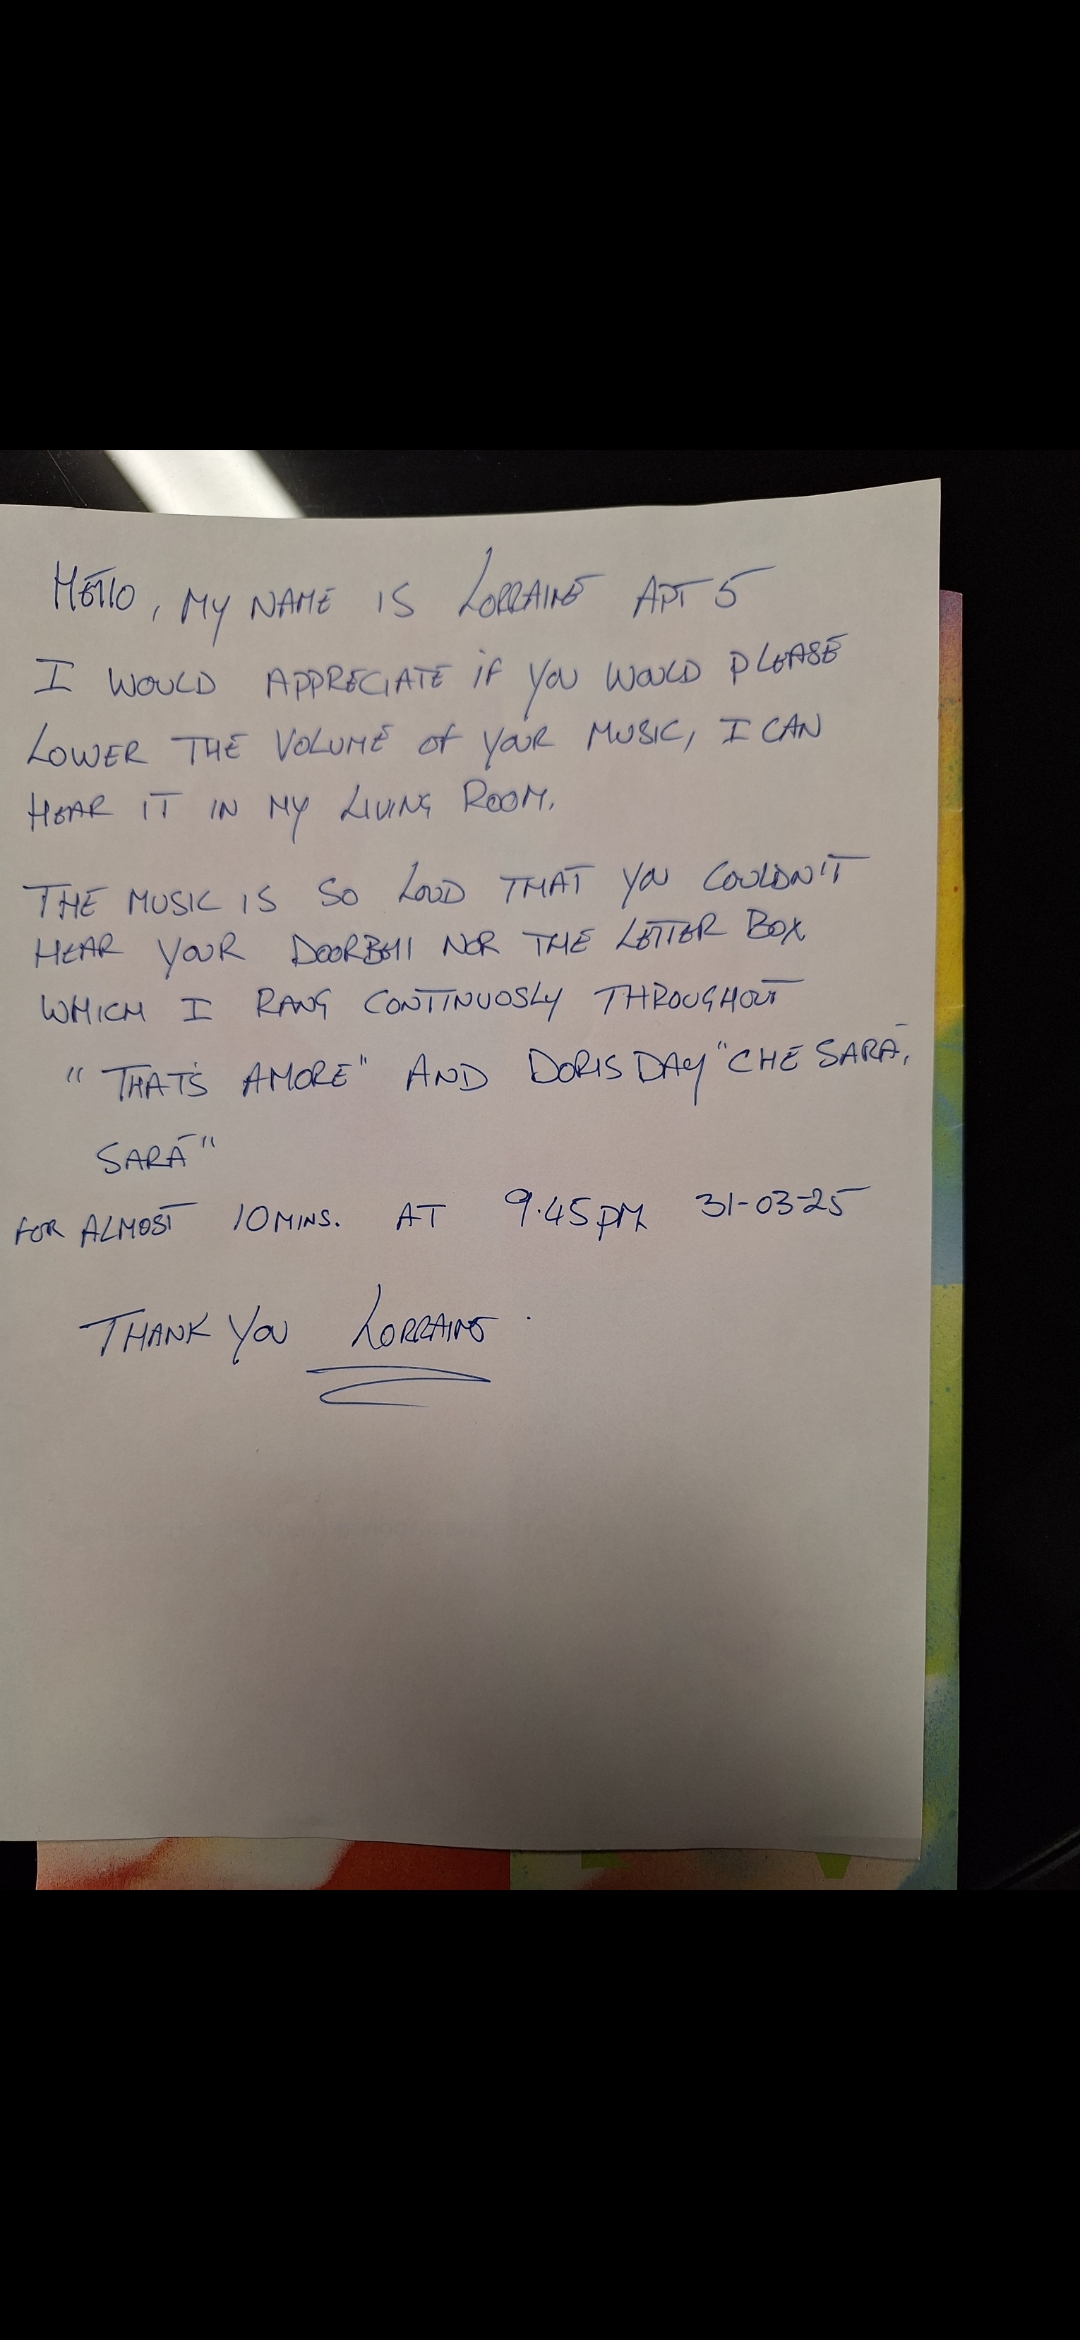 HEllO, MY NAME IS LORRAINE APT 5
I WOULD APPRECIATE if YOU WOULD PLEASE
LOWER THE VOLUME Of YOUR MUSIC, I CAN
HEAR IT IN MY LIVING ROOM.
THE MUSIC IS SO LOUD THAT YOU COULDN'T
HEAR YOUR DOORBEll NOR THE LETTER BOX
WHICH I RANG CONTINUOSLY THROUGHOUT
"THAT'S AMORE" AND DORIS DAY "CHE SARÁ,
SARÁ"
FOR ALMOST 10MINS. AT 9.45PM 31-03-25
THANK YOU LORRAINE.